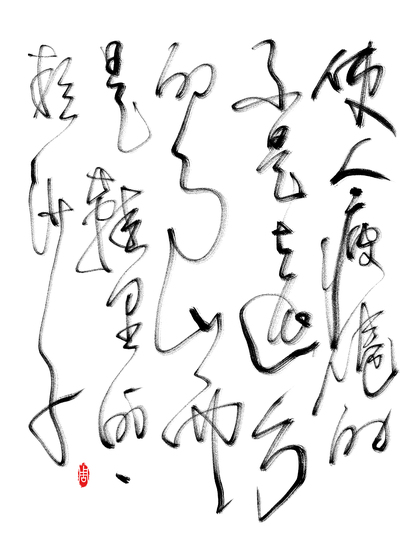 使人疲憊的
不是遠方
的高山而
是鞋里的一
粒沙子